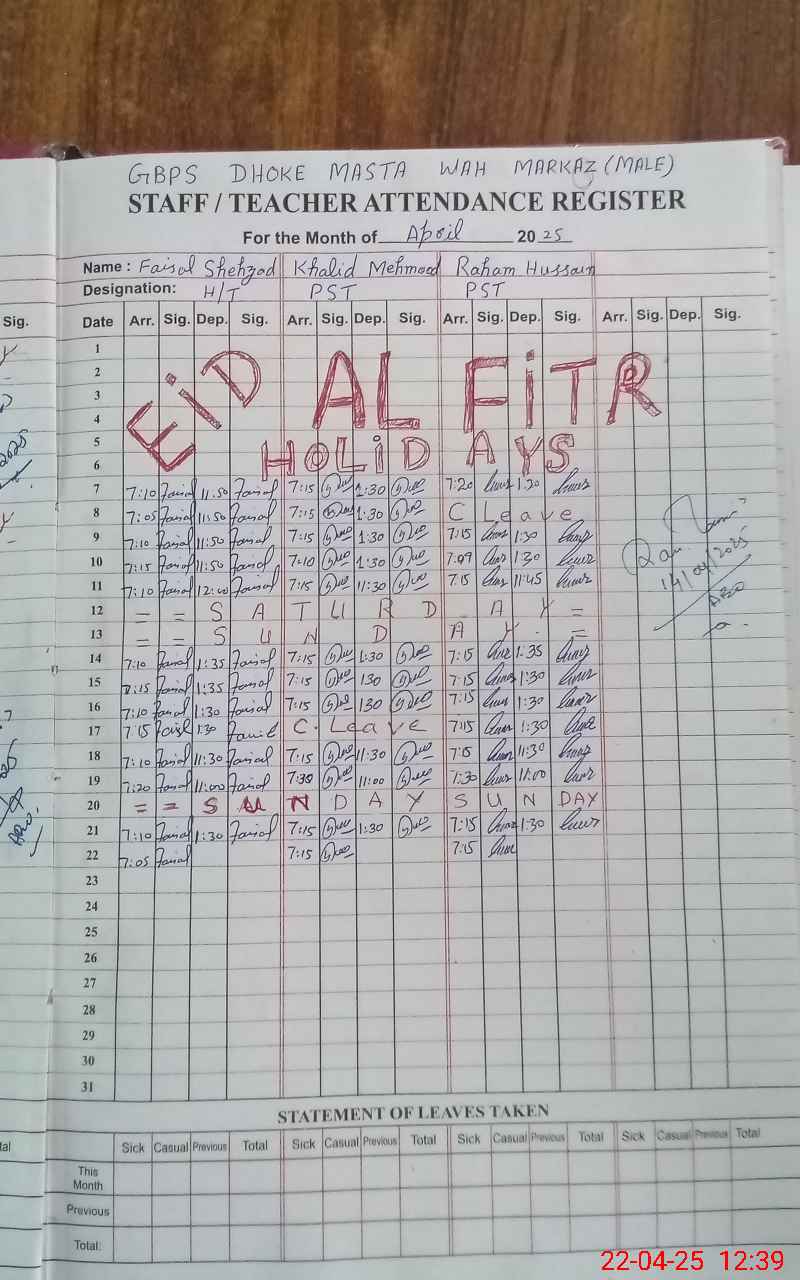 GBPS DHOKE MASTA WAH MARKAZ (MALE)
STAFF / TEACHER ATTENDANCE REGISTER
For the Month of April 2025
Name : Faisal Shehzad Khalid Mehmood Raham Hussain
Designation: H/T PST PST
Sig. Date Arr. Sig. Dep. Sig. Arr. Sig. Dep. Sig. Arr. Sig. Dep. Sig. Arr. Sig. Dep. Sig.
1
2
3
4
EID AL FiTR
5
6
HOLiDAYS
7 7:10 Faisal 11:50 Faisal 7:15 1:30 7:20 1:20
8 7:05 Faisal 11:50 Faisal 7:15 1:30 C Leave
9 7:10 Faisal 11:50 Faisal 7:15 1:30 7:15 1:30
10 7:15 Faisal 11:50 Faisal 7:10 1:30 7:09 1:30
11 7:10 Faisal 12:00 Faisal 7:15 11:30 7:15 11:45
14/04/2025
12 = = SATURDAY =
13 = = SUNDAY =
14 7:10 Faisal 1:35 Faisal 7:15 1:30 7:15 1:35
15 7:15 Faisal 1:35 Faisal 7:15 130 7:15 1:30
16 7:10 Faisal 1:30 Faisal 7:15 130 7:15 1:30
17 7:15 Faisal 1:30 Faisal C. Leave 7:15 1:30
18 7:10 Faisal 11:30 Faisal 7:15 11:30 7:15 11:30
19 7:20 Faisal 11:00 Faisal 7:30 11:00 7:30 11:00
20 = = SUNDAY SUNDAY
21 7:10 Faisal 1:30 Faisal 7:15 1:30 7:15 1:30
22 7:05 Faisal 7:15 7:15
23
24
25
26
27
28
29
30
31
STATEMENT OF LEAVES TAKEN
Sick Casual Previous Total Sick Casual Previous Total Sick Casual Previous Total Sick Casual Previous Total
This
Month
Previous
Total:
22-04-25 12:39